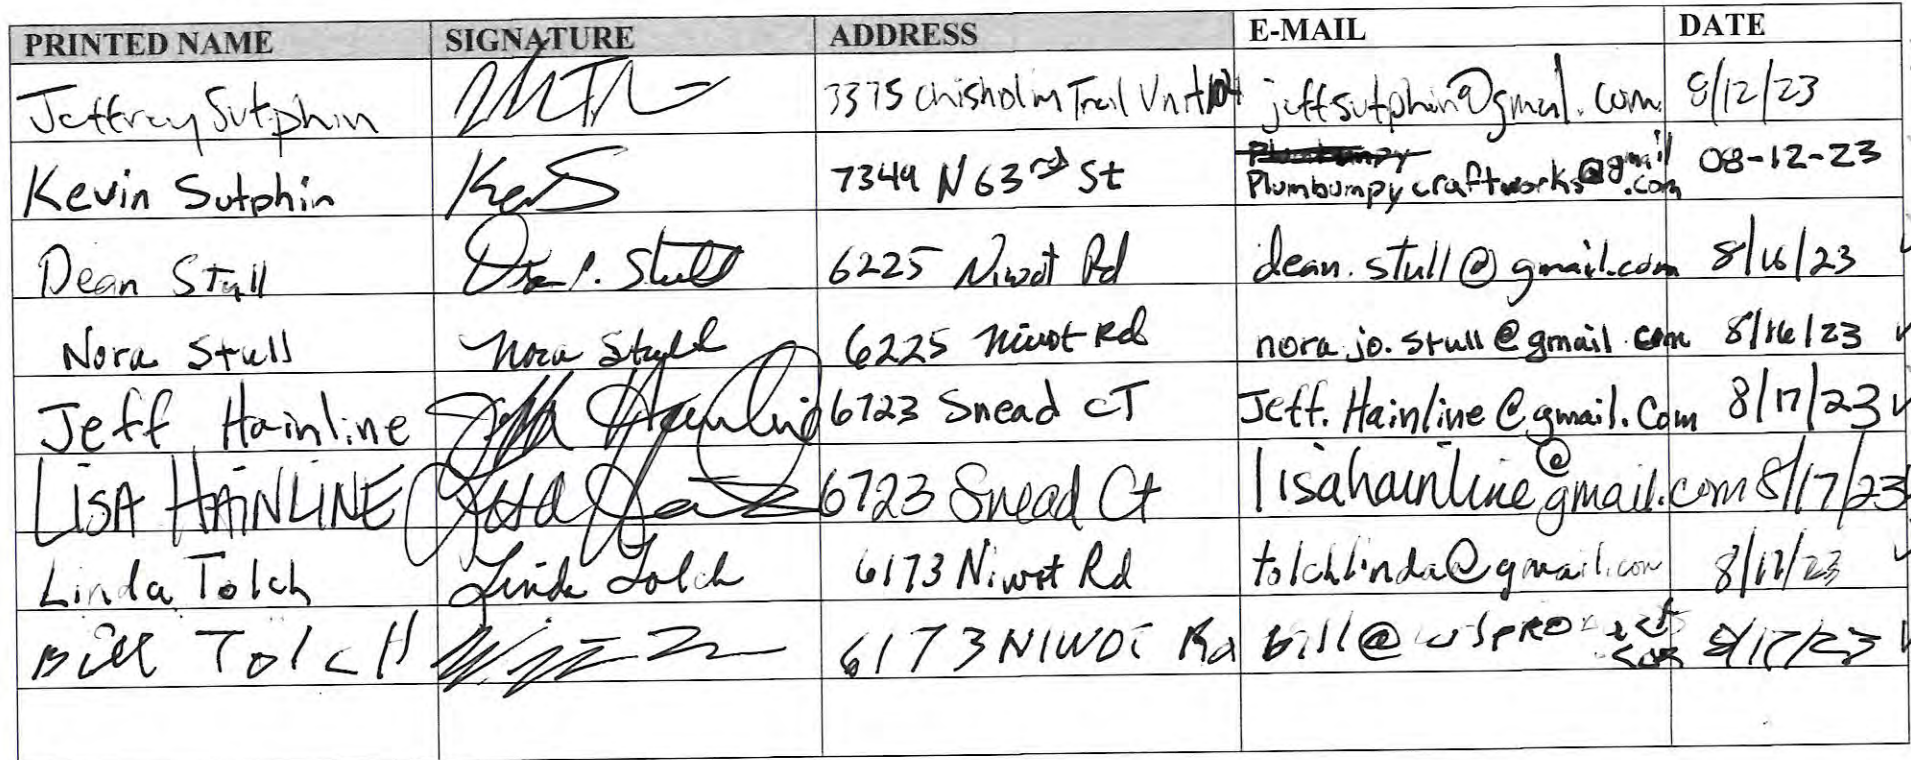 PRINTED NAME SIGNATURE ADDRESS E-MAIL DATE
Jeffrey Sutphin 3375 Chisholm Trail Unit 104 jeffsutphin@gmail.com 8/12/23
Kevin Sutphin KeS 7349 N 63rd St Plumbumpy Plumbumpycraftworks@gmail.com 08-12-23
Dean Stull Dean P. Stull 6225 Niwot Rd dean.stull@gmail.com 8/16/23
Nora Stull Nora Stull 6225 Niwot Rd nora.jo.stull@gmail.com 8/16/23
Jeff Hainline Jeff Hainline 6723 Snead CT Jeff.Hainline@gmail.Com 8/17/23
LISA HAINLINE Lisa 6723 Snead Ct lisahainline@gmail.com 8/17/23
Linda Tolch Linda Tolch 6173 Niwot Rd tolchlinda@gmail.com 8/17/23
Bill TolcH 6173 NIWOT Rd 8/17/23